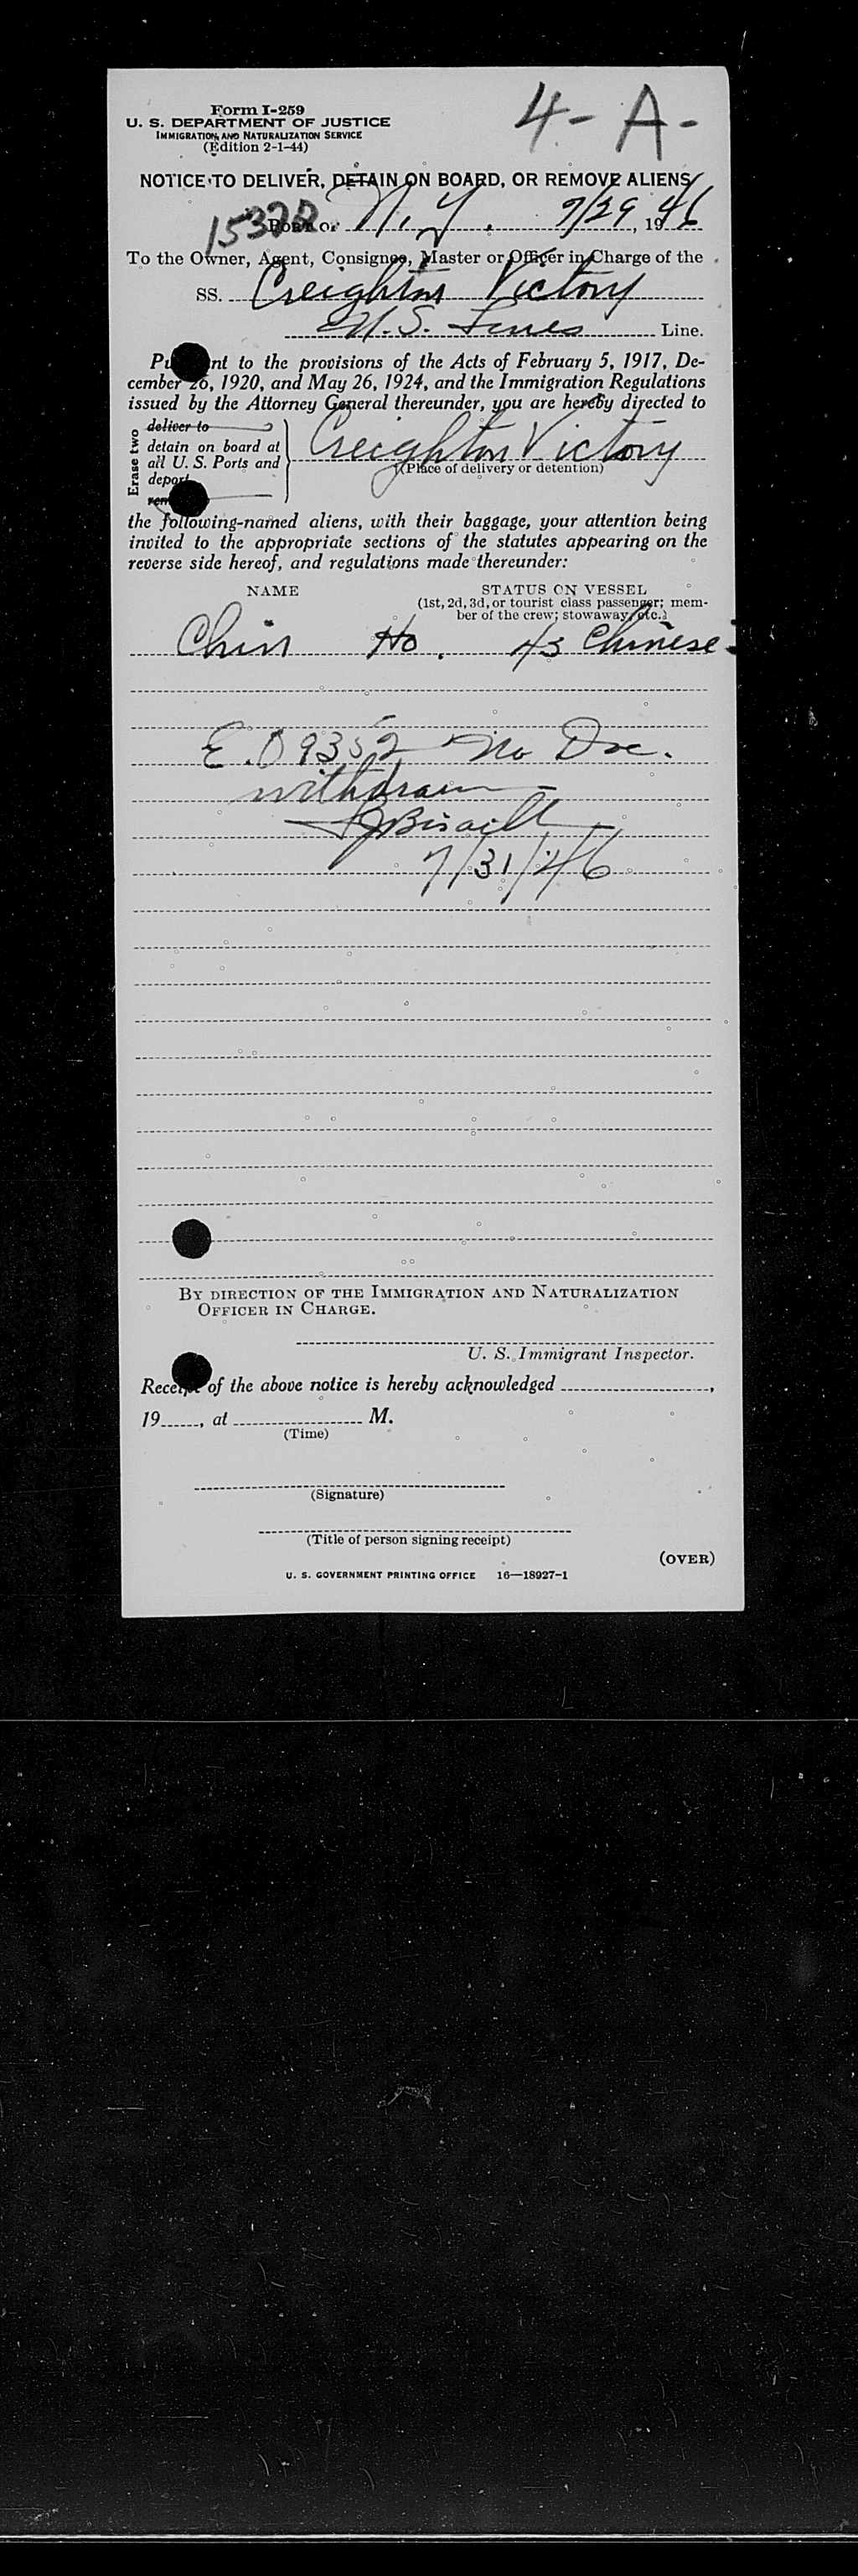 Form I-259
U. S. DEPARTMENT OF JUSTICE
IMMIGRATION AND NATURALIZATION SERVICE
(Edition 2-1-44)
4 - A -
NOTICE TO DELIVER, DETAIN ON BOARD, OR REMOVE ALIENS
Port of N. Y. 7/29, 1946
To the Owner, Agent, Consignee, Master or Officer in Charge of the
SS. Creighton Victory
U.S. Lines Line.
Pursuant to the provisions of the Acts of February 5, 1917, De-
cember 26, 1920, and May 26, 1924, and the Immigration Regulations
issued by the Attorney General thereunder, you are hereby directed to
Erase two
deliver to
detain on board at
all U. S. Ports and
deport
Creighton Victory
(Place of delivery or detention)
the following-named aliens, with their baggage, your attention being
invited to the appropriate sections of the statutes appearing on the
reverse side hereof, and regulations made thereunder:
NAME STATUS ON VESSEL
(1st, 2d, 3d, or tourist class passenger; mem-
ber of the crew; stowaway, etc.)
Chin Ho. 43 Chinese
E.O 9352 No Doc.
withdrawn
7/31/46
BY DIRECTION OF THE IMMIGRATION AND NATURALIZATION
OFFICER IN CHARGE.
U. S. Immigrant Inspector.
Receipt of the above notice is hereby acknowledged ,
19 , at M.
(Time)
(Signature)
(Title of person signing receipt)
(OVER)
U. S. GOVERNMENT PRINTING OFFICE 16—18927-1